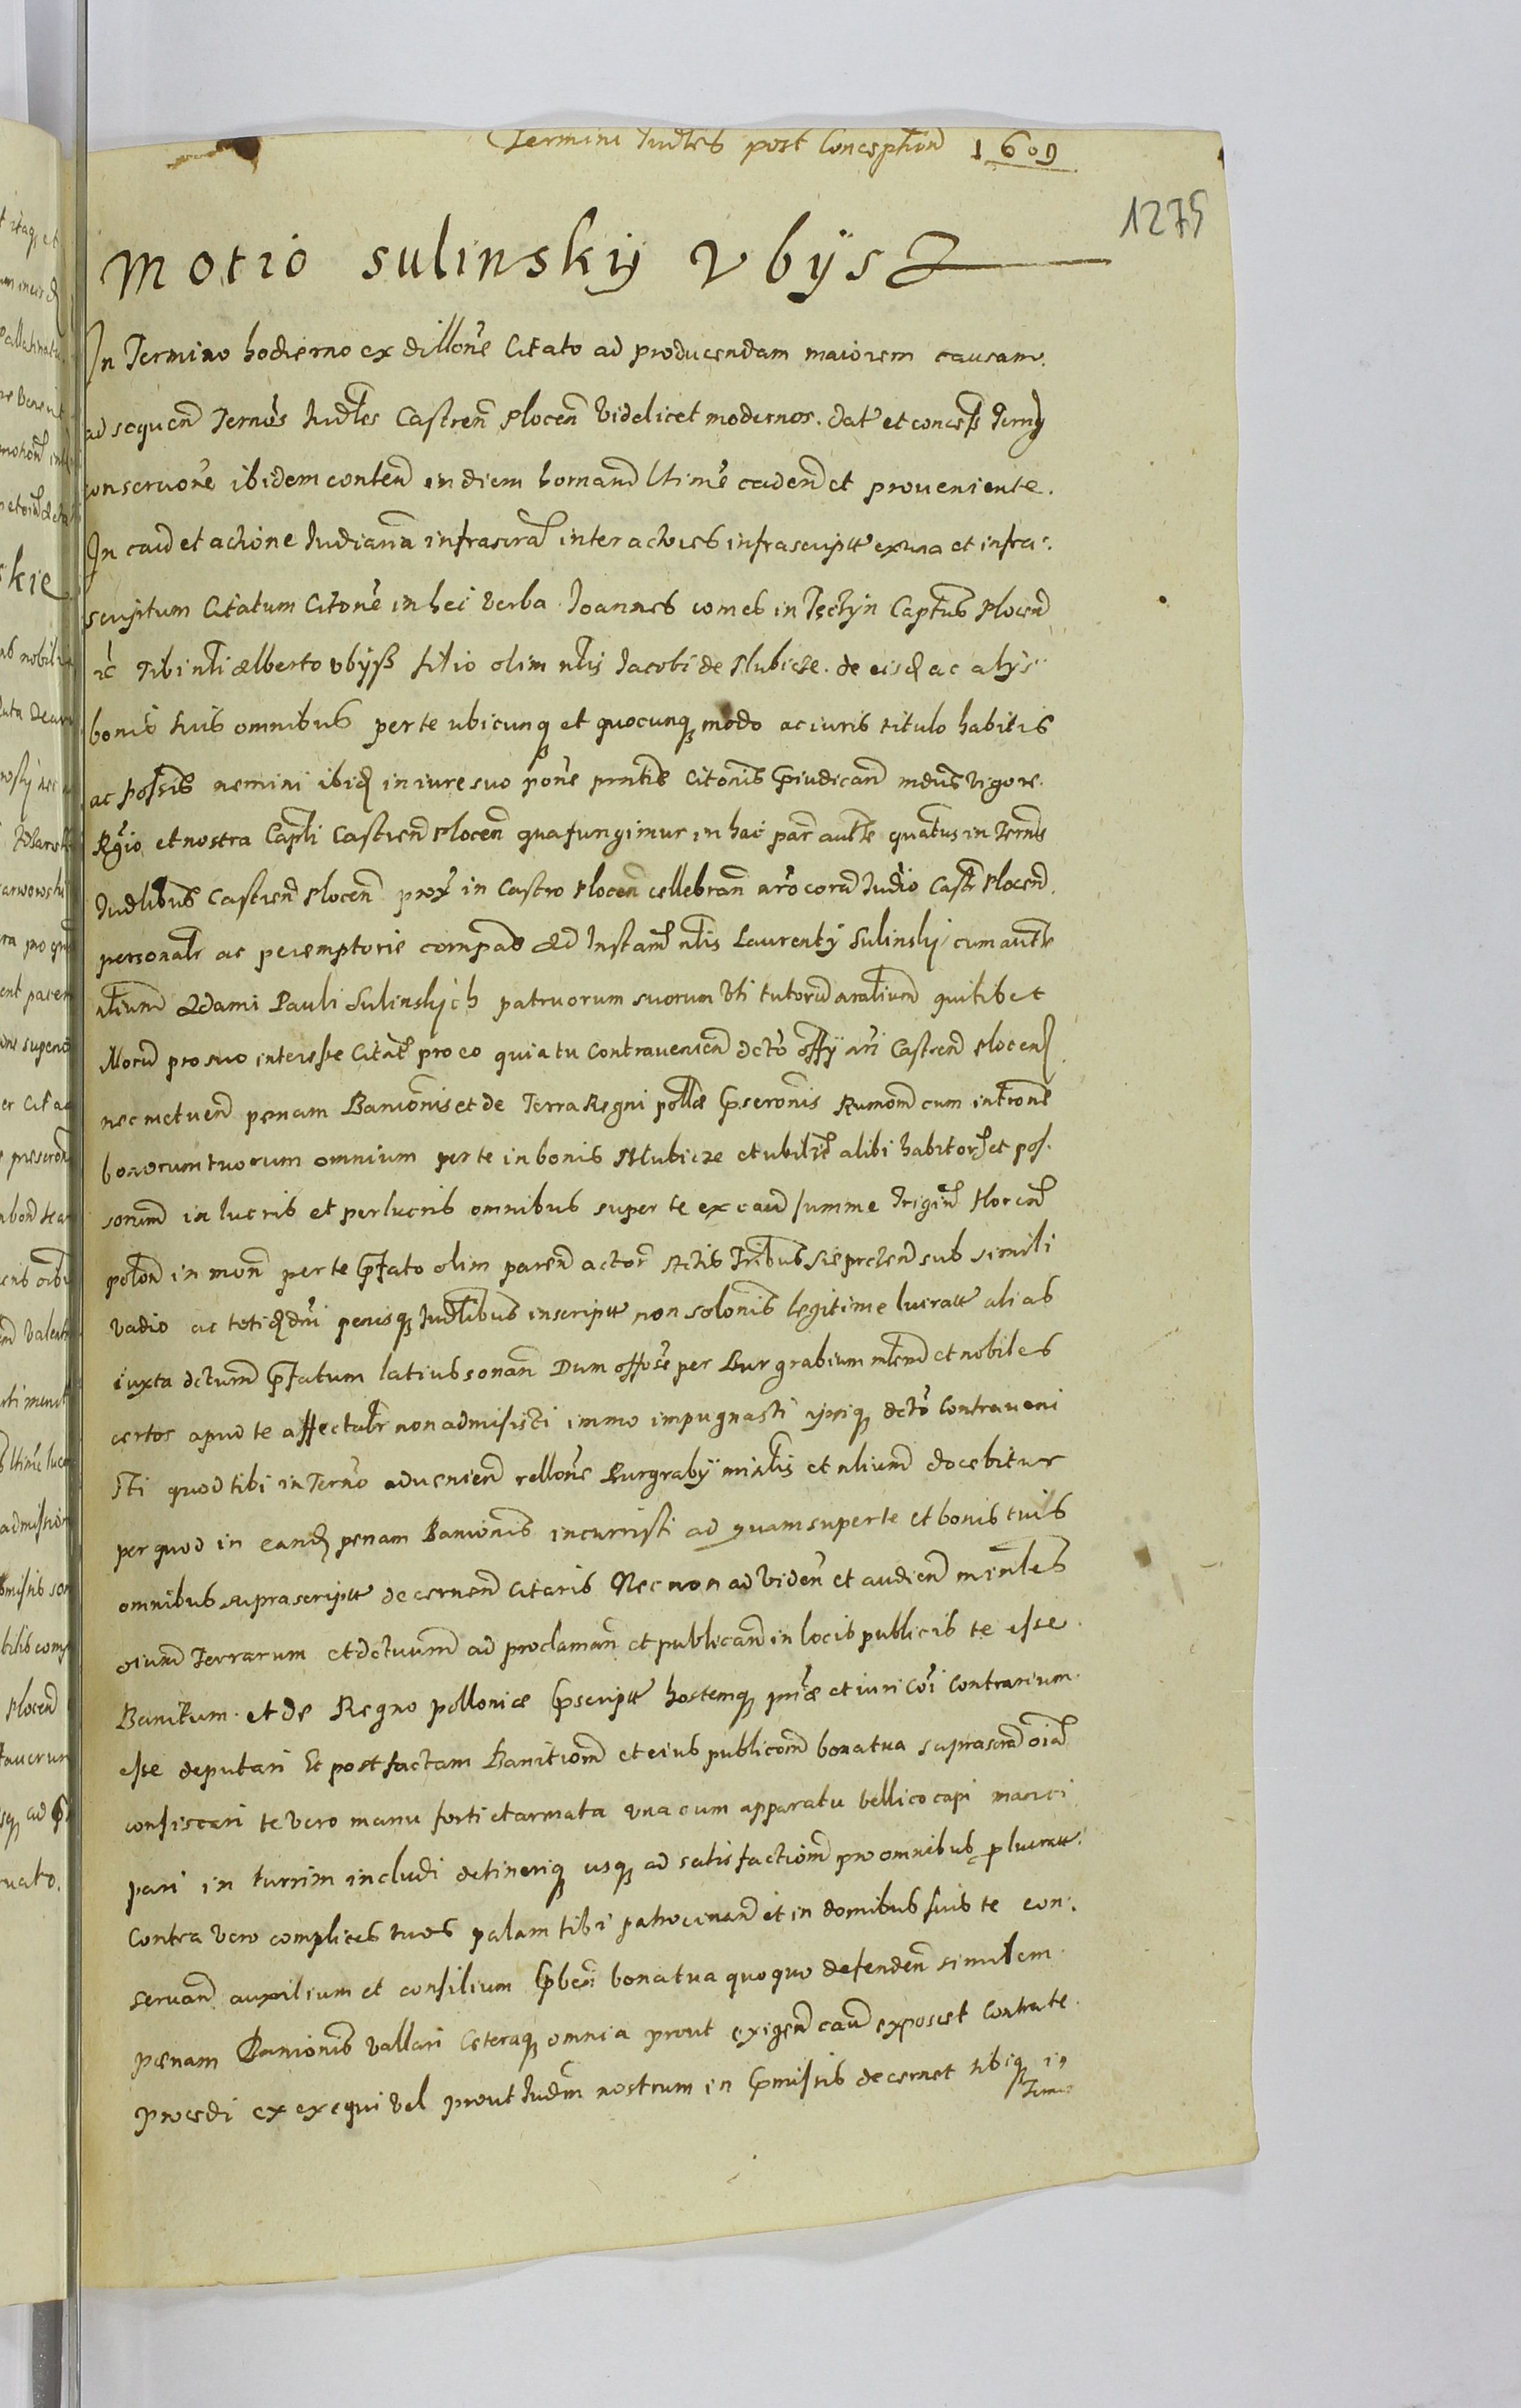 Termini Judles post Conceptiond 1609
1275
Motio Sulinskij Vbijsz
In Termino hodierno ex dillone Citato ad producendam maiorem causam.
ad sequend Ternos Judles Castren Plocen Videlicet modernos. dat et concess
conservone ibidem contend in diem hornand ltime cadend et proveniente.
In caud et actione Judiaria infrascra inter actores infrascriptt ex una et infra:
scriptum Citatum Citone in hec verba Joannes comes in Tęczyn Captneus Plocend
rc Tibi nli Alberto vbijß filio olim nlis Jacobi de Slubicze. de eisd ac alijs
bonis tuis omnibus per te ubicunq et quocunq modo ac iuris titulo habitis
ac possis nemini ibid in iure suo pone pntis Citonis piudicand mdmus vigore.
Rgio et nostra Capli Castrend Plocend qua fungimur in hac par autte quatnus in Ternis
Judlibus Castrend Plocend prox in Castro Plocen cellebran aro corad Judio Castr Plocend.
personalr ac peremptorie compas Ad Instand nlis Laurentij Sulinskj cum autte
nliumd Adami Pauli Sulinskjch patruorum suorum Vti tutord analiumd quilibet
illord pro suo interesse Citat pro eo quia tu Contraveniend dcto offij nri Castrend Plocend
nec metuend penam Banionis et de Terra Regni pollae pseronis Rumomd cum introne
bonorum tuorum omnium per te in bonis Slubicze et ubilit alibi habitord et pos.
sorumd in lucris et perlucris omnibus super te ex caud summe trigint flor cad
polond in mond per te pfato olim parend actor sctis Fribus sieprczend sub simili
vadio ac totid dni penisq Judlibus inscriptt non solonis legitime lucratt alias
iuxta dctumd pfatum latius sonand Dum offose per Burgrabium mlemd et nobiles
certos apud te affectatr non admisisti immo impugnasti ipsiq dcto Contraveni
sti quod tibi in Terno adveniend rellone Burgrabij minlis et nliumd docebitur
per quod in eand penam Banionis incurristi ad quam super te et bonis tuis
omnibus supra scriptt decernend Citaris Nec non ad viden et audiend minles
oiumd Terrarum et dctuumd ad proclamand et publicand in locis publicis te esse
Banitum. et de Regno polloniae pscriptt hostemq priae et iuri coi Contrarium.
esse deputari Et post factam Banitiomd et eius publicomd bona tua suprascrad oia
confiscari te vero manu forti et armata una cum apparatu bellico capi manci
pari in turrim includi detineriq usq ad satisfactiomd pro omnibus plucratt.
Contra vero complices tuos palam tibi patrocinand et in domibus suis te con:
servand auxilium et consilium pbeni bona tua quoquo defenden similem
paenam Banionis vallari Ceteraq omnia prout exigend caud exposcet Contra te.
procedi ex exequi vel prout Judm nostrum in pmissis decernet tibiq in